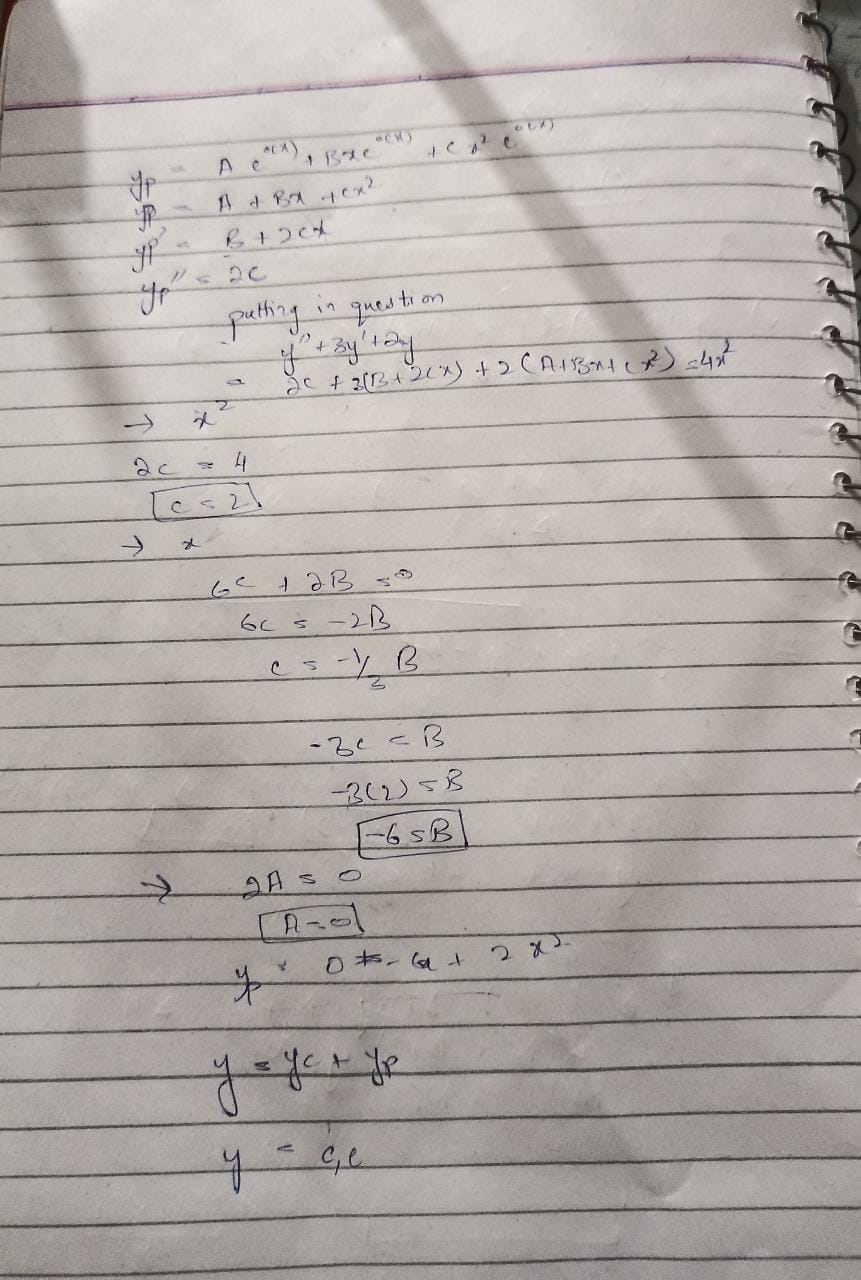 yp = A e^0(x) + Bxe^0(x) + C x² e^0(x)
yp = A + Bx + cx²
yp' = B + 2cx
yp'' = 2c
putting in question
y'' + 3y' + 2y
= 2c + 3(B + 2cx) + 2(A + Bx + cx²) = 4x²
→ x²
2c = 4
c = 2
→ x
6c + 2B = 0
6c = -2B
c = -1/3 B
-3c = B
-3(2) = B
-6 = B
→ 2A = 0
A = 0
yp = 0 - 6x + 2x²
y = yc + yp
y = c₁e